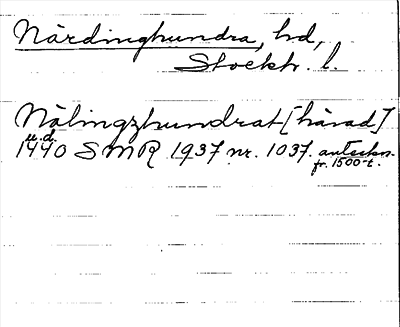 Närdinghundra, hd,
Stockh. l.
Nälingzhundrat [härad]
u.d.
1440 SMR 1937 nr. 1037. anteckn.
fr. 1500-t.